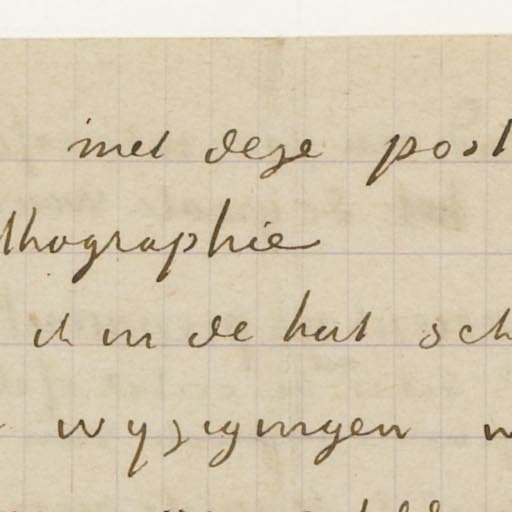 met deze post
thographie
ik in de hut sch
wyzigingen